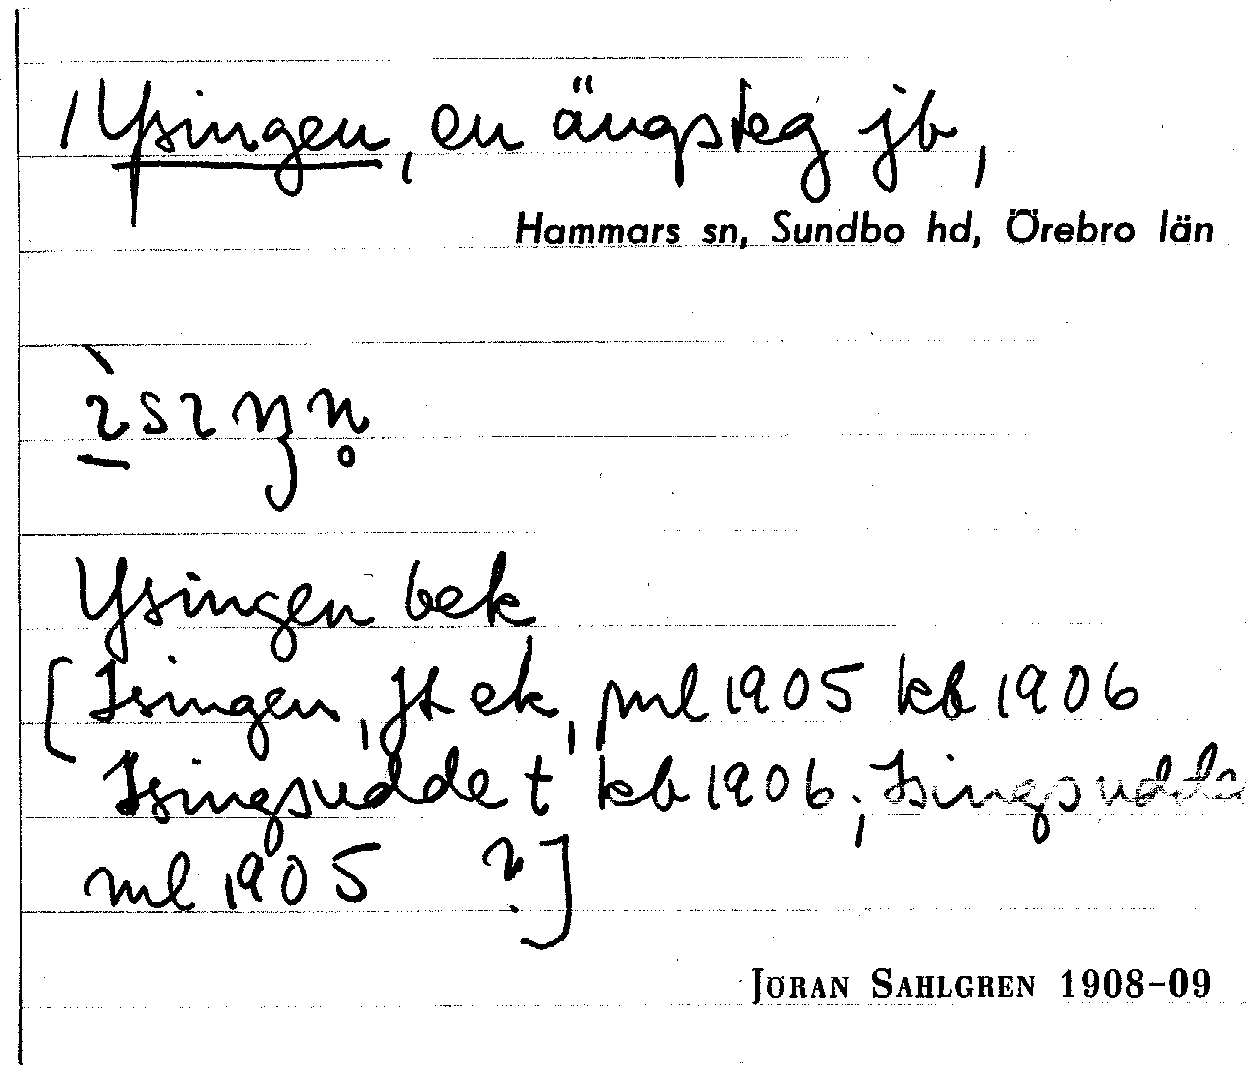 / Ysingen, en ängsteg jb,
Hammars sn, Sundbo hd, Örebro län
Ysingen bek
[Isingen, jt ek, ml 1905 kb 1906
Isingsuddet kb 1906; Isingsudde
ml 1905 ?]
JÖRAN SAHLGREN 1908-09